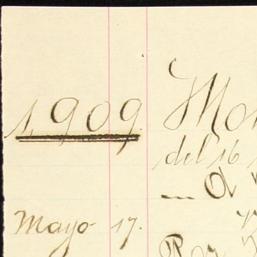 1,909.
Mo
del 16
Mayo 17.
Por